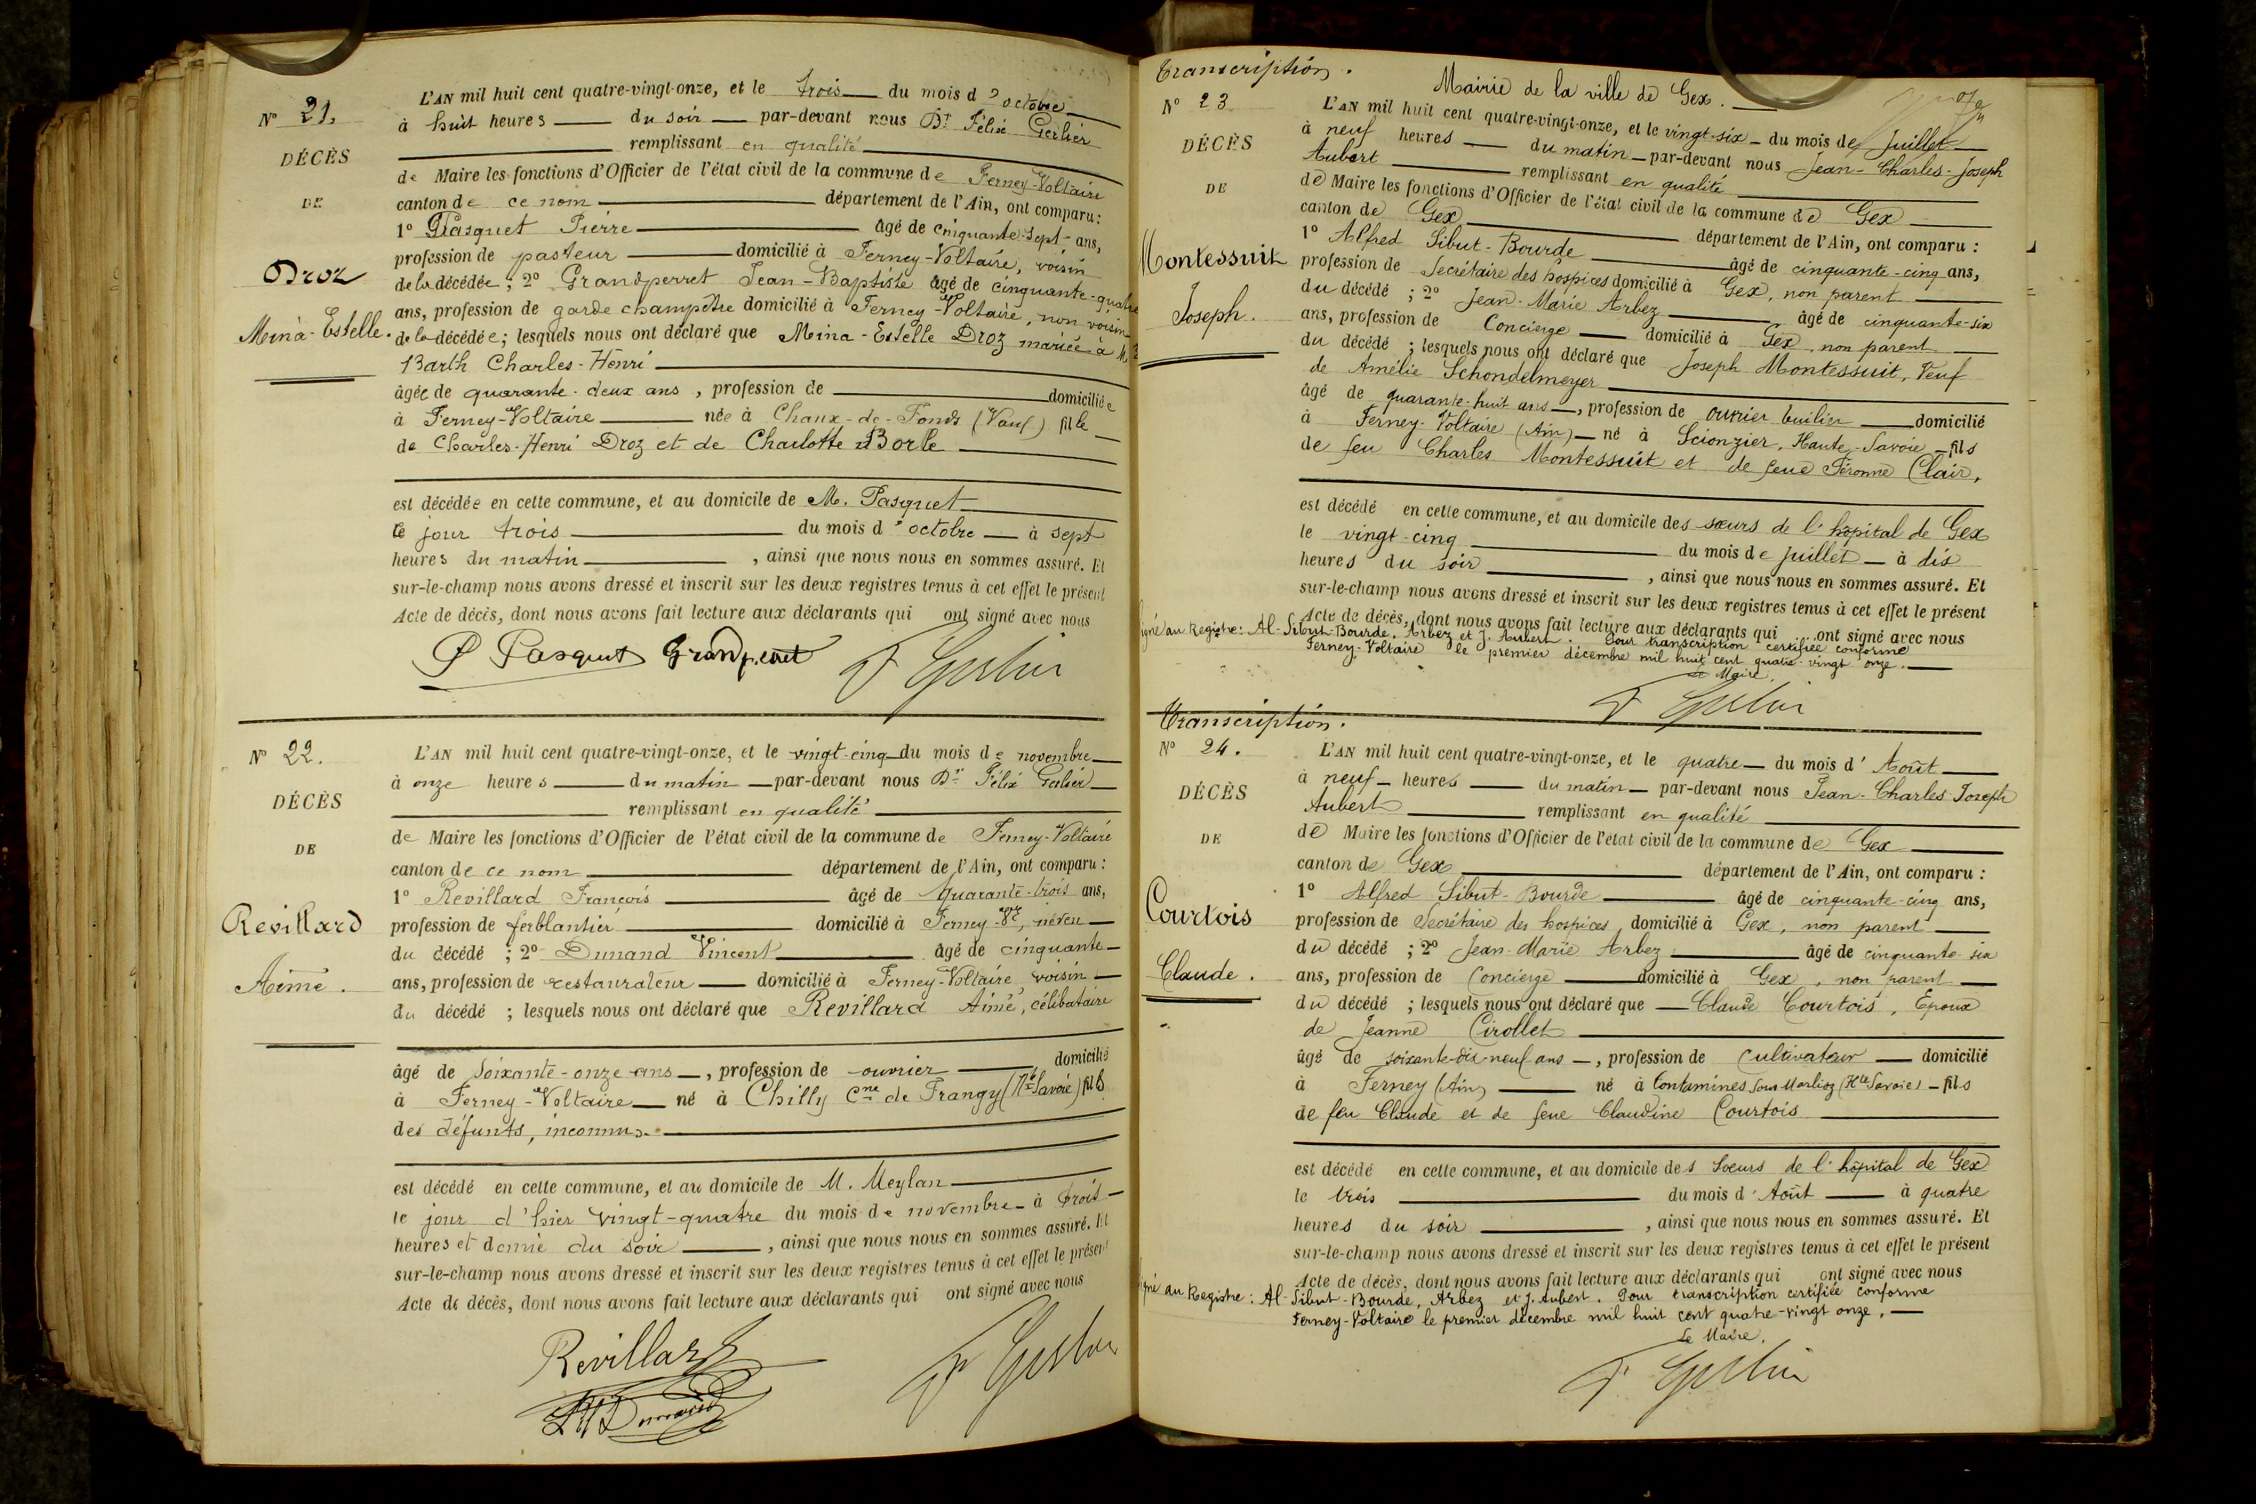 N° 21.
DÉCÈS
DE
Droz
Mina-Estelle.
L'AN mil huit cent quatre-vingt-onze, et le trois du mois d'octobre
à huit heures du soir par-devant nous Dr Félix Gerlier
remplissant en qualité
de Maire les fonctions d'Officier de l'état civil de la commune de Ferney-Voltaire
canton de ce nom département de l'Ain, ont comparu :
1° Pasquet Pierre âgé de cinquante-sept ans,
profession de pasteur domicilié à Ferney-Voltaire, voisin
de la décédée ; 2° Grandperret Jean-Baptiste âgé de cinquante-quatre
ans, profession de garde champêtre domicilié à Ferney-Voltaire, non voisin
de la décédée ; lesquels nous ont déclaré que Mina-Estelle Droz mariée à M.
Barth Charles-Henri
âgée de quarante-deux ans, profession de domiciliée
à Ferney-Voltaire née à Chaux-de-Fonds (Vaud) fille
de Charles-Henri Droz et de Charlotte Borle
est décédée en cette commune, et au domicile de M. Pasquet
ce jour trois du mois d'octobre à sept
heures du matin, ainsi que nous nous en sommes assuré. Et
sur-le-champ nous avons dressé et inscrit sur les deux registres tenus à cet effet le présent
Acte de décès, dont nous avons fait lecture aux déclarants qui ont signé avec nous
P Pasquet Grandperret F Gerlier
N° 22.
DÉCÈS
DE
Revillard
Aimé.
L'AN mil huit cent quatre-vingt-onze, et le vingt-cinq du mois de novembre
à onze heures du matin par-devant nous Dr Félix Gerlier
remplissant en qualité
de Maire les fonctions d'Officier de l'état civil de la commune de Ferney-Voltaire
canton de ce nom département de l'Ain, ont comparu :
1° Revillard François âgé de quarante-trois ans,
profession de ferblantier domicilié à Ferney-Vre, néveu
du décédé ; 2° Dunand Vincent âgé de cinquante
ans, profession de restaurateur domicilié à Ferney-Voltaire, voisin
du décédé ; lesquels nous ont déclaré que Revillard Aimé, célibataire
âgé de soixante-onze ans, profession de ouvrier domicilié
à Ferney-Voltaire né à Chilly Cne de Frangy (Hte Savoie) fils
des défunts, inconnus.
est décédé en cette commune, et au domicile de M. Meylan
le jour d'hier vingt-quatre du mois de novembre à trois
heures et demie du soir, ainsi que nous nous en sommes assuré. Et
sur-le-champ nous avons dressé et inscrit sur les deux registres tenus à cet effet le présent
Acte de décès, dont nous avons fait lecture aux déclarants qui ont signé avec nous
Revillard F Gerlier
Dunand
Transcription.
Mairie de la ville de Gex.
N° 23
DÉCÈS
DE
Montessuit
Joseph.
L'AN mil huit cent quatre-vingt-onze, et le vingt-six du mois de Juillet
à neuf heures du matin par-devant nous Jean-Charles-Joseph
Aubert remplissant en qualité
de Maire les fonctions d'Officier de l'état civil de la commune de Gex
canton de Gex département de l'Ain, ont comparu :
1° Alfred Sibut-Bourde âgé de cinquante-cinq ans,
profession de Secrétaire des hospices domicilié à Gex, non parent
du décédé ; 2° Jean-Marie Arbez âgé de cinquante-six
ans, profession de Concierge domicilié à Gex, non parent
du décédé ; lesquels nous ont déclaré que Joseph Montessuit, Veuf
de Amélie Schondelmeyer
âgé de quarante-huit ans, profession de ouvrier tuilier domicilié
à Ferney-Voltaire (Ain) né à Scionzier, Haute-Savoie fils
de feu Charles Montessuit et de feue Péronne Clair,
est décédé en cette commune, et au domicile des sœurs de l'hôpital de Gex
le vingt-cinq du mois de juillet à dix
heures du soir, ainsi que nous nous en sommes assuré. Et
sur-le-champ nous avons dressé et inscrit sur les deux registres tenus à cet effet le présent
Acte de décès, dont nous avons fait lecture aux déclarants qui ont signé avec nous
Signé au Registre : Al-Sibut-Bourde, Arbez et J. Aubert. Pour transcription certifiée conforme
Ferney-Voltaire le premier décembre mil huit cent quatre-vingt onze.
Le Maire
F Gerlier
Transcription.
N° 24.
DÉCÈS
DE
Courtois
Claude.
L'AN mil huit cent quatre-vingt-onze, et le quatre du mois d'Août
à neuf heures du matin par-devant nous Jean-Charles-Joseph
Aubert remplissant en qualité
de Maire les fonctions d'Officier de l'état civil de la commune de Gex
canton de Gex département de l'Ain, ont comparu :
1° Alfred Sibut-Bourde âgé de cinquante-cinq ans,
profession de Secrétaire des hospices domicilié à Gex, non parent
du décédé ; 2° Jean-Marie Arbez âgé de cinquante-six
ans, profession de Concierge domicilié à Gex, non parent
du décédé ; lesquels nous ont déclaré que Claude Courtois, Epoux
de Jeanne Cirollet
âgé de soixante-dix-neuf ans, profession de Cultivateur domicilié
à Ferney (Ain) né à Contamines sous Marlioz (Hte Savoie) fils
de feu Claude et de feue Claudine Courtois
est décédé en cette commune, et au domicile des Sœurs de l'hôpital de Gex
le trois du mois d'Août à quatre
heures du soir, ainsi que nous nous en sommes assuré. Et
sur-le-champ nous avons dressé et inscrit sur les deux registres tenus à cet effet le présent
Acte de décès, dont nous avons fait lecture aux déclarants qui ont signé avec nous
Signé au Registre : Al-Sibut-Bourde, Arbez et J. Aubert. Pour transcription certifiée conforme
Ferney-Voltaire le premier décembre mil huit cent quatre-vingt onze.
Le Maire,
F Gerlier